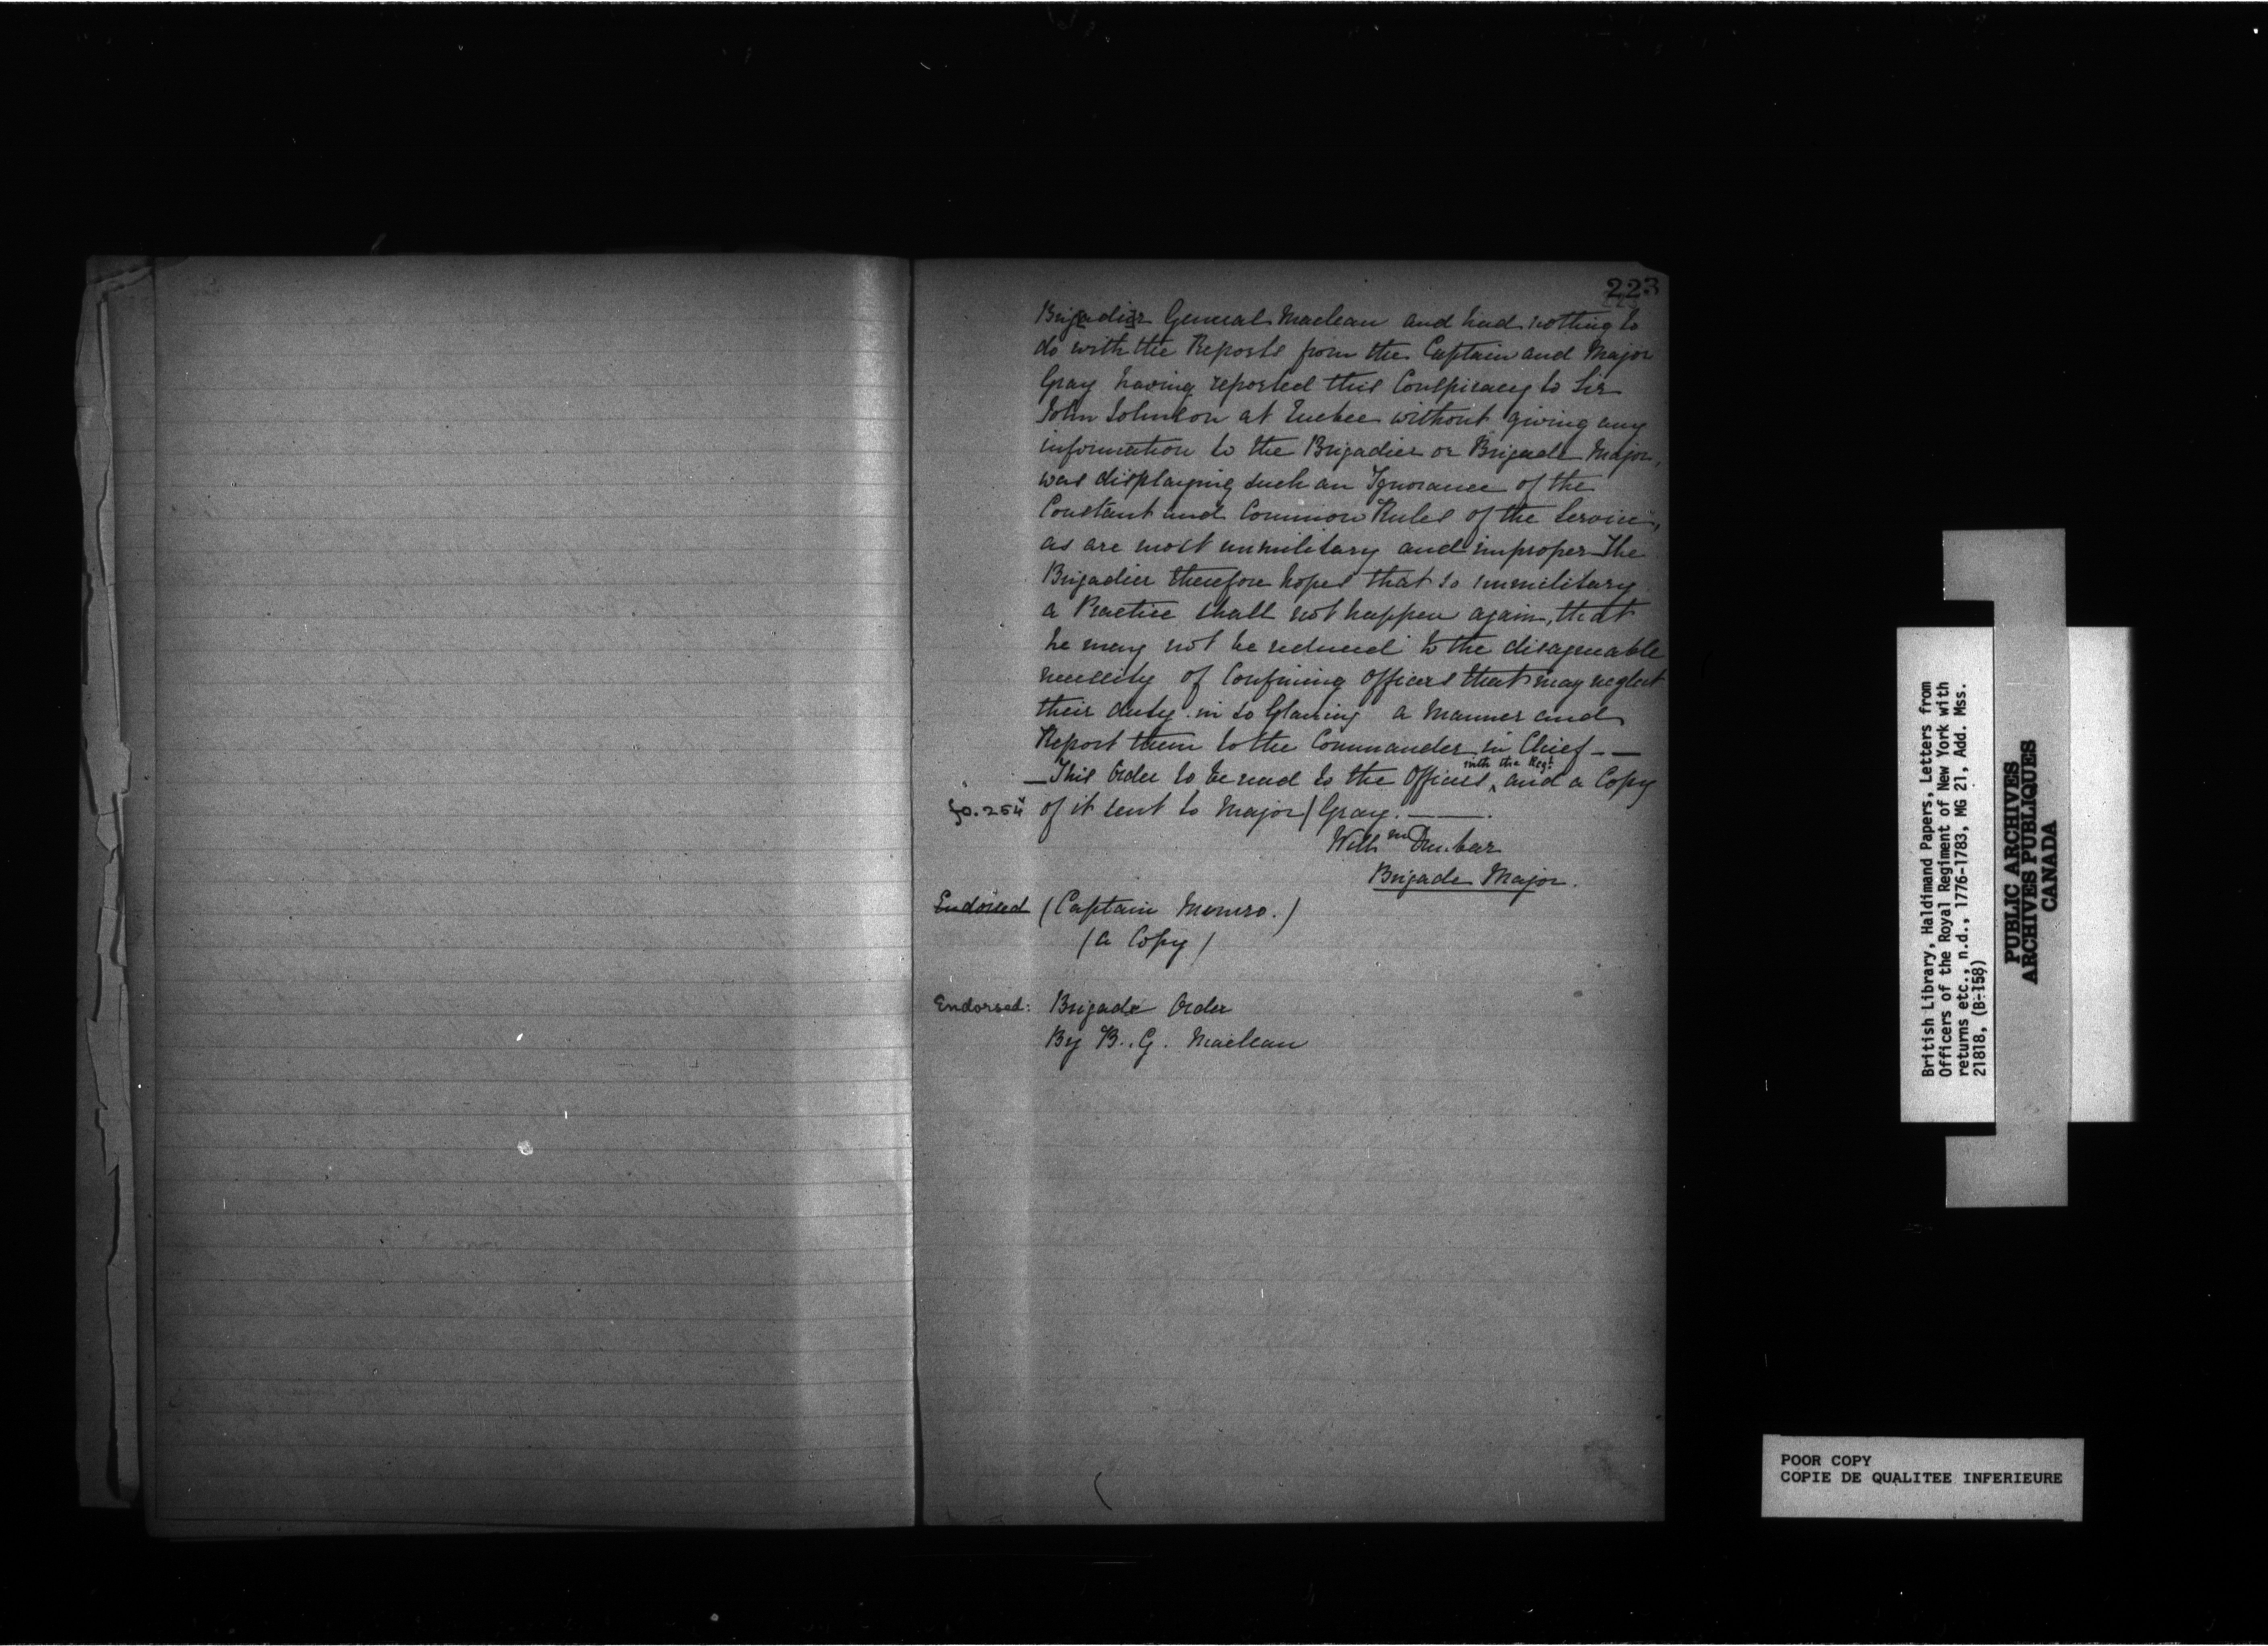 223
Brigadier General Maclean and had nothing to
do with the Reports from the Captain and Major
Gray having reported this Conspiracy to Sir
John Johnson at Quebec without giving any
information to the Brigadier or Brigade Major,
was displaying such an Ignorance of the
Constant and Common Rules of the Service,
as are most unmilitary and improper The
Brigadier therefore hopes that so unmilitary
a Practice shall not happen again, that
he may not be reduced to the disagreable
necessity of Confining Officers that may neglect
their duty in so Glaring a Manner and
Report them to the Commander in Chief - —
with the Regt
— This Order to be read to the Officers ^ and a Copy
fo. 254 of it sent to Major / Gray. —
Willm Dunbar
Brigade Major.
Endorsed (Captain Monro.)
(a Copy)
Endorsed: Brigade Order
By B. G. Maclean
British Library, Haldimand Papers, Letters from
Officers of the Royal Regiment of New York with
returns etc., n.d., 1776-1783, MG 21, Add. Mss.
21818, (B-158)
PUBLIC ARCHIVES
ARCHIVES PUBLIQUES
CANADA
POOR COPY
COPIE DE QUALITEE INFERIEURE